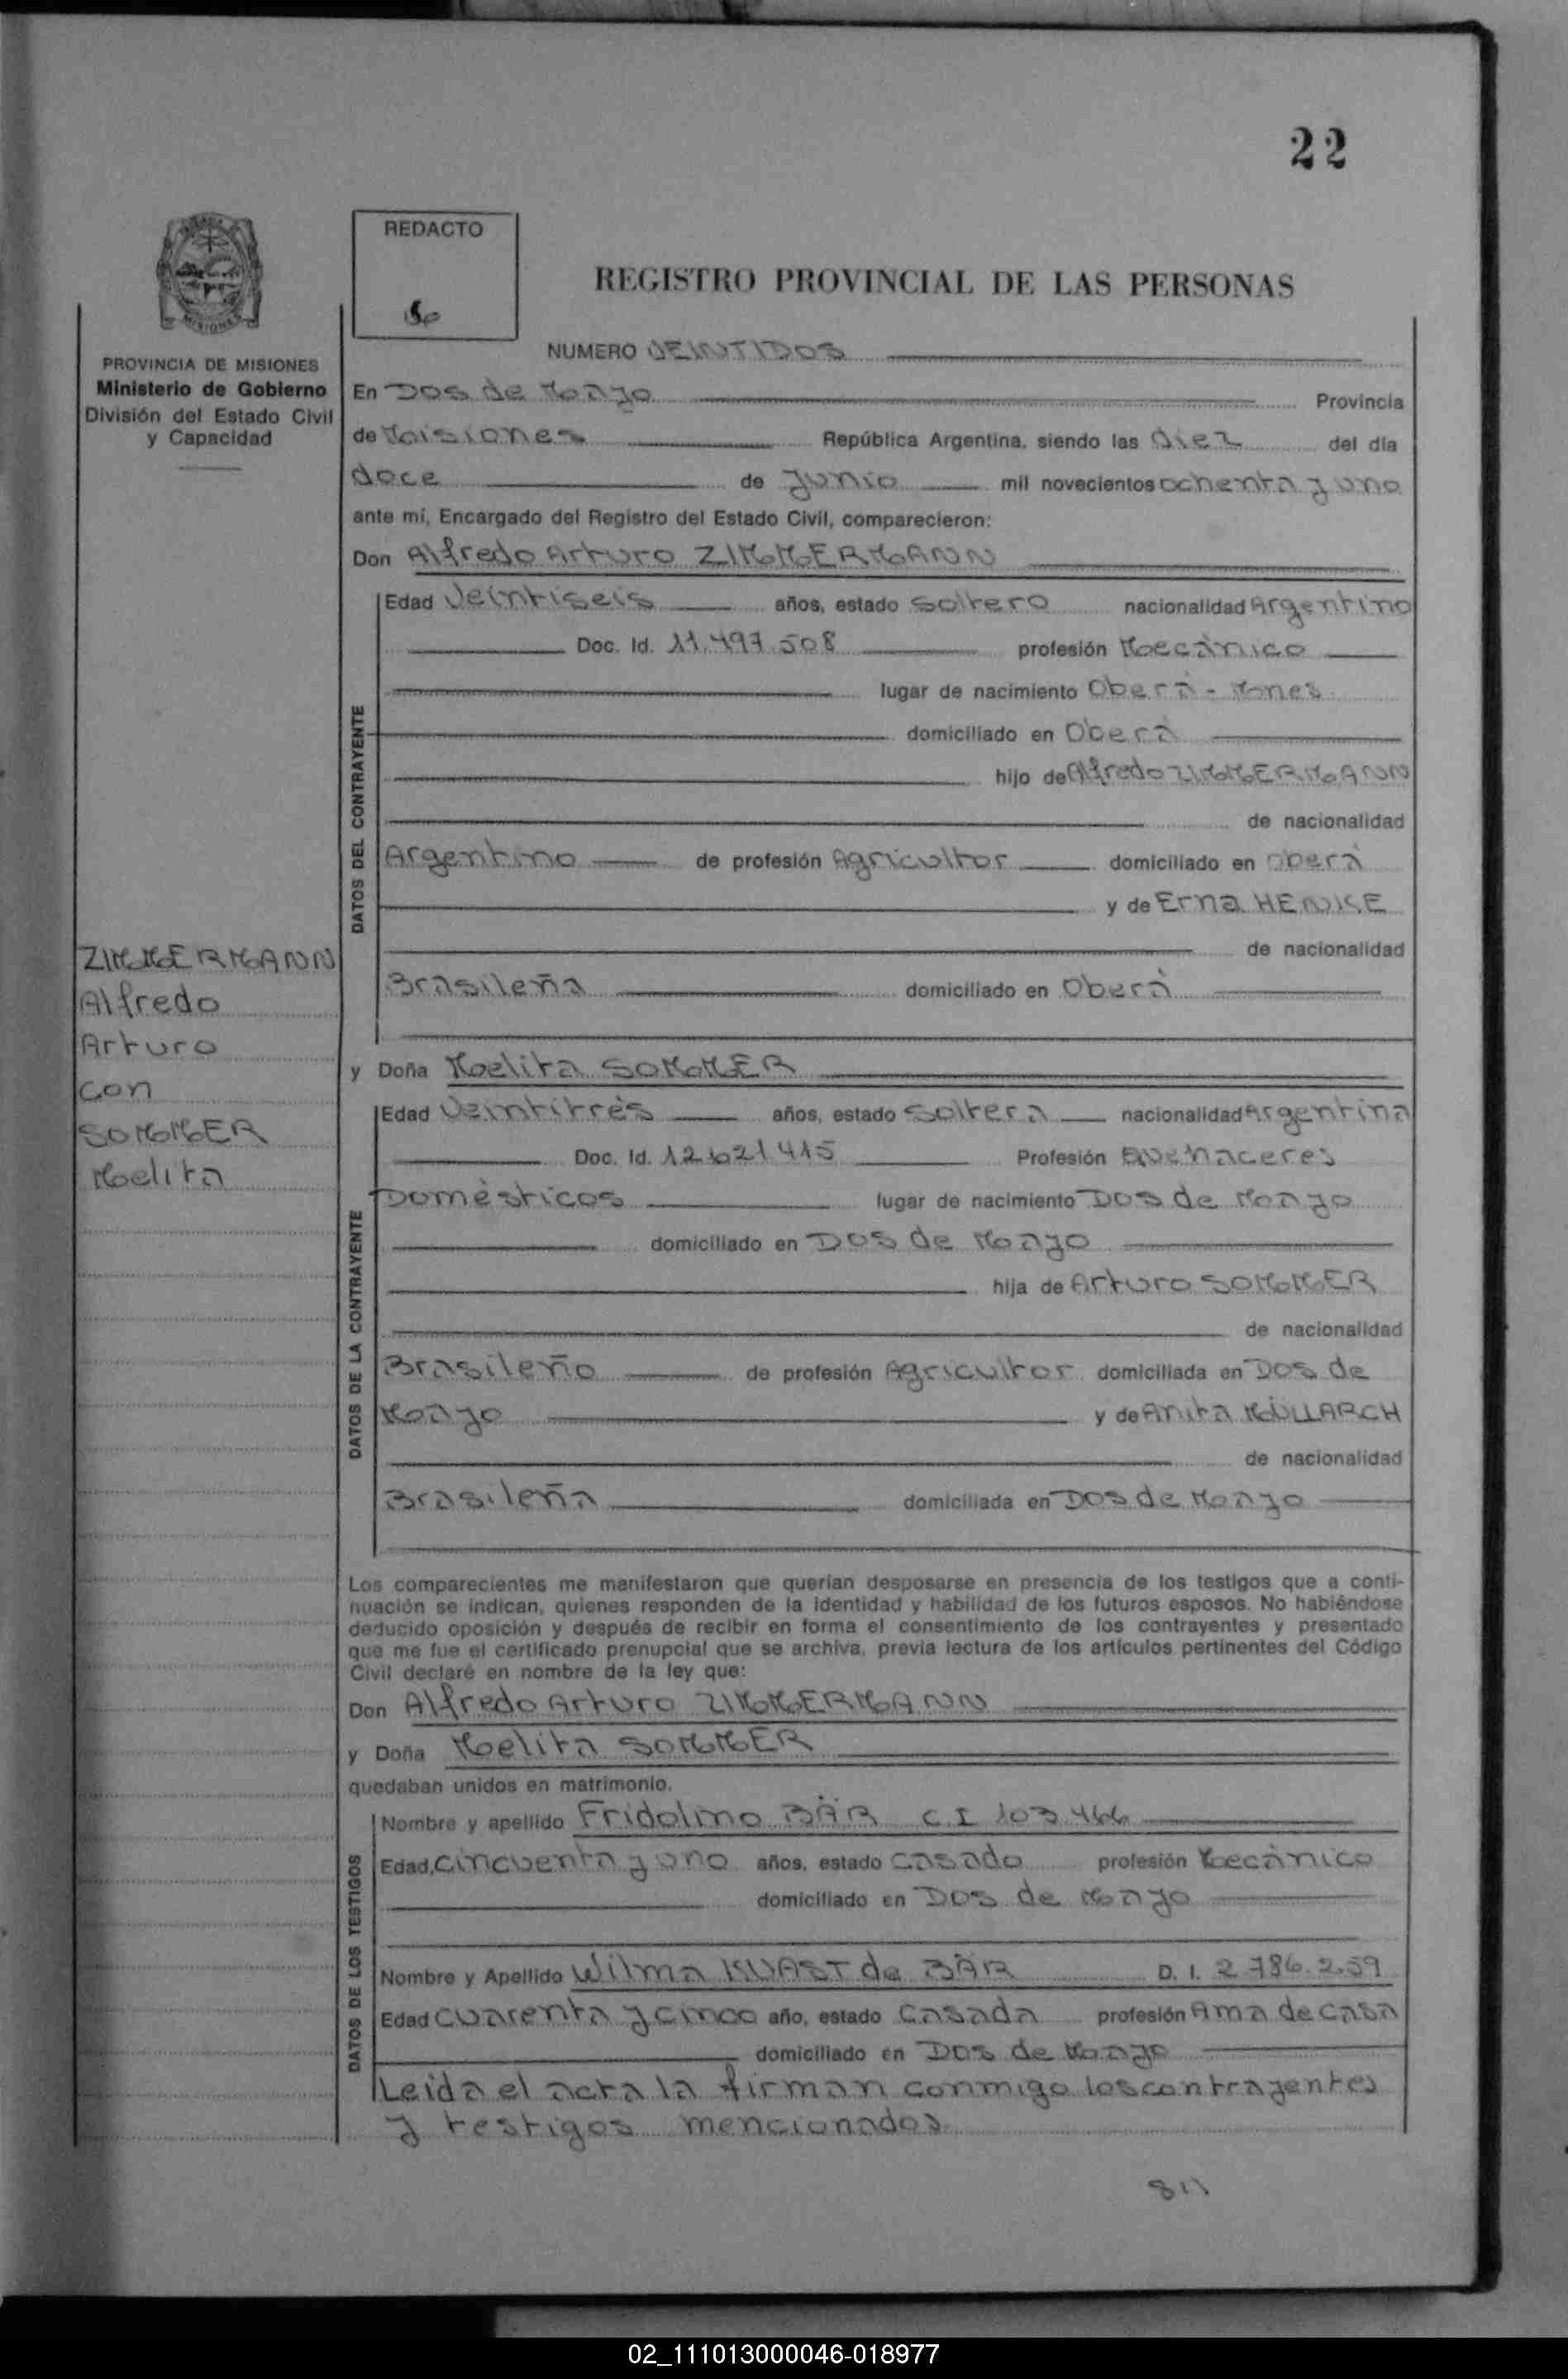 22
REDACTO
REGISTRO PROVINCIAL DE LAS PERSONAS
MISIONES
PROVINCIA DE MISIONES
Ministerio de Gobierno
División del Estado Civil
y Capacidad
NUMERO VEINTIDOS
En Dos de Mayo Provincia
de Misiones República Argentina, siendo las diez del día
doce de Junio mil novecientos ochenta y uno
ante mí, Encargado del Registro del Estado Civil, comparecieron:
Don Alfredo Arturo ZIMMERMANN
DATOS DEL CONTRAYENTE
Edad Veintiseis años, estado Soltero nacionalidad Argentino
Doc. Id. 11.497.508 profesión Mecànico
lugar de nacimiento Oberà - Mnes
domiciliado en Oberà
hijo de Alfredo ZIMMERMANN
de nacionalidad
Argentino de profesión Agricultor domiciliado en Oberà
y de Erna HENKE
de nacionalidad
Brasileña domiciliado en Oberà
ZIMMERMANN
Alfredo
Arturo
con
SOMMER
Melita
y Doña Melita SOMMER
DATOS DE LA CONTRAYENTE
Edad Veintitrès años, estado Soltera nacionalidad Argentina
Doc. Id. 12.621.415 Profesión Quehaceres
Domèsticos lugar de nacimiento Dos de Mayo
domiciliado en Dos de Mayo
hija de Arturo SOMMER
de nacionalidad
Brasileño de profesión Agricultor domiciliada en Dos de
Mayo y de Anita MÜLLARCH
de nacionalidad
Brasileña domiciliada en Dos de Mayo
Los comparecientes me manifestaron que querían desposarse en presencia de los testigos que a conti-
nuación se indican, quienes responden de la identidad y habilidad de los futuros esposos. No habiéndose
deducido oposición y después de recibir en forma el consentimiento de los contrayentes y presentado
que me fue el certificado prenupcial que se archiva, previa lectura de los artículos pertinentes del Código
Civil declaré en nombre de la ley que:
Don Alfredo Arturo ZIMMERMANN
y Doña Melita SOMMER
quedaban unidos en matrimonio.
DATOS DE LOS TESTIGOS
Nombre y apellido Fridolino BÄR C.I 103.466
Edad, Cincuenta y uno años, estado Casado profesión Mecànico
domiciliado en Dos de Mayo
Nombre y Apellido Wilma KUAST de BÄR D. I. 2.786.259
Edad Cuarenta y cinco año, estado Casada profesión Ama de casa
domiciliado en Dos de Mayo
Leida el acta la firman conmigo los contrayentes
y testigos mencionados
811
02_111013000046-018977